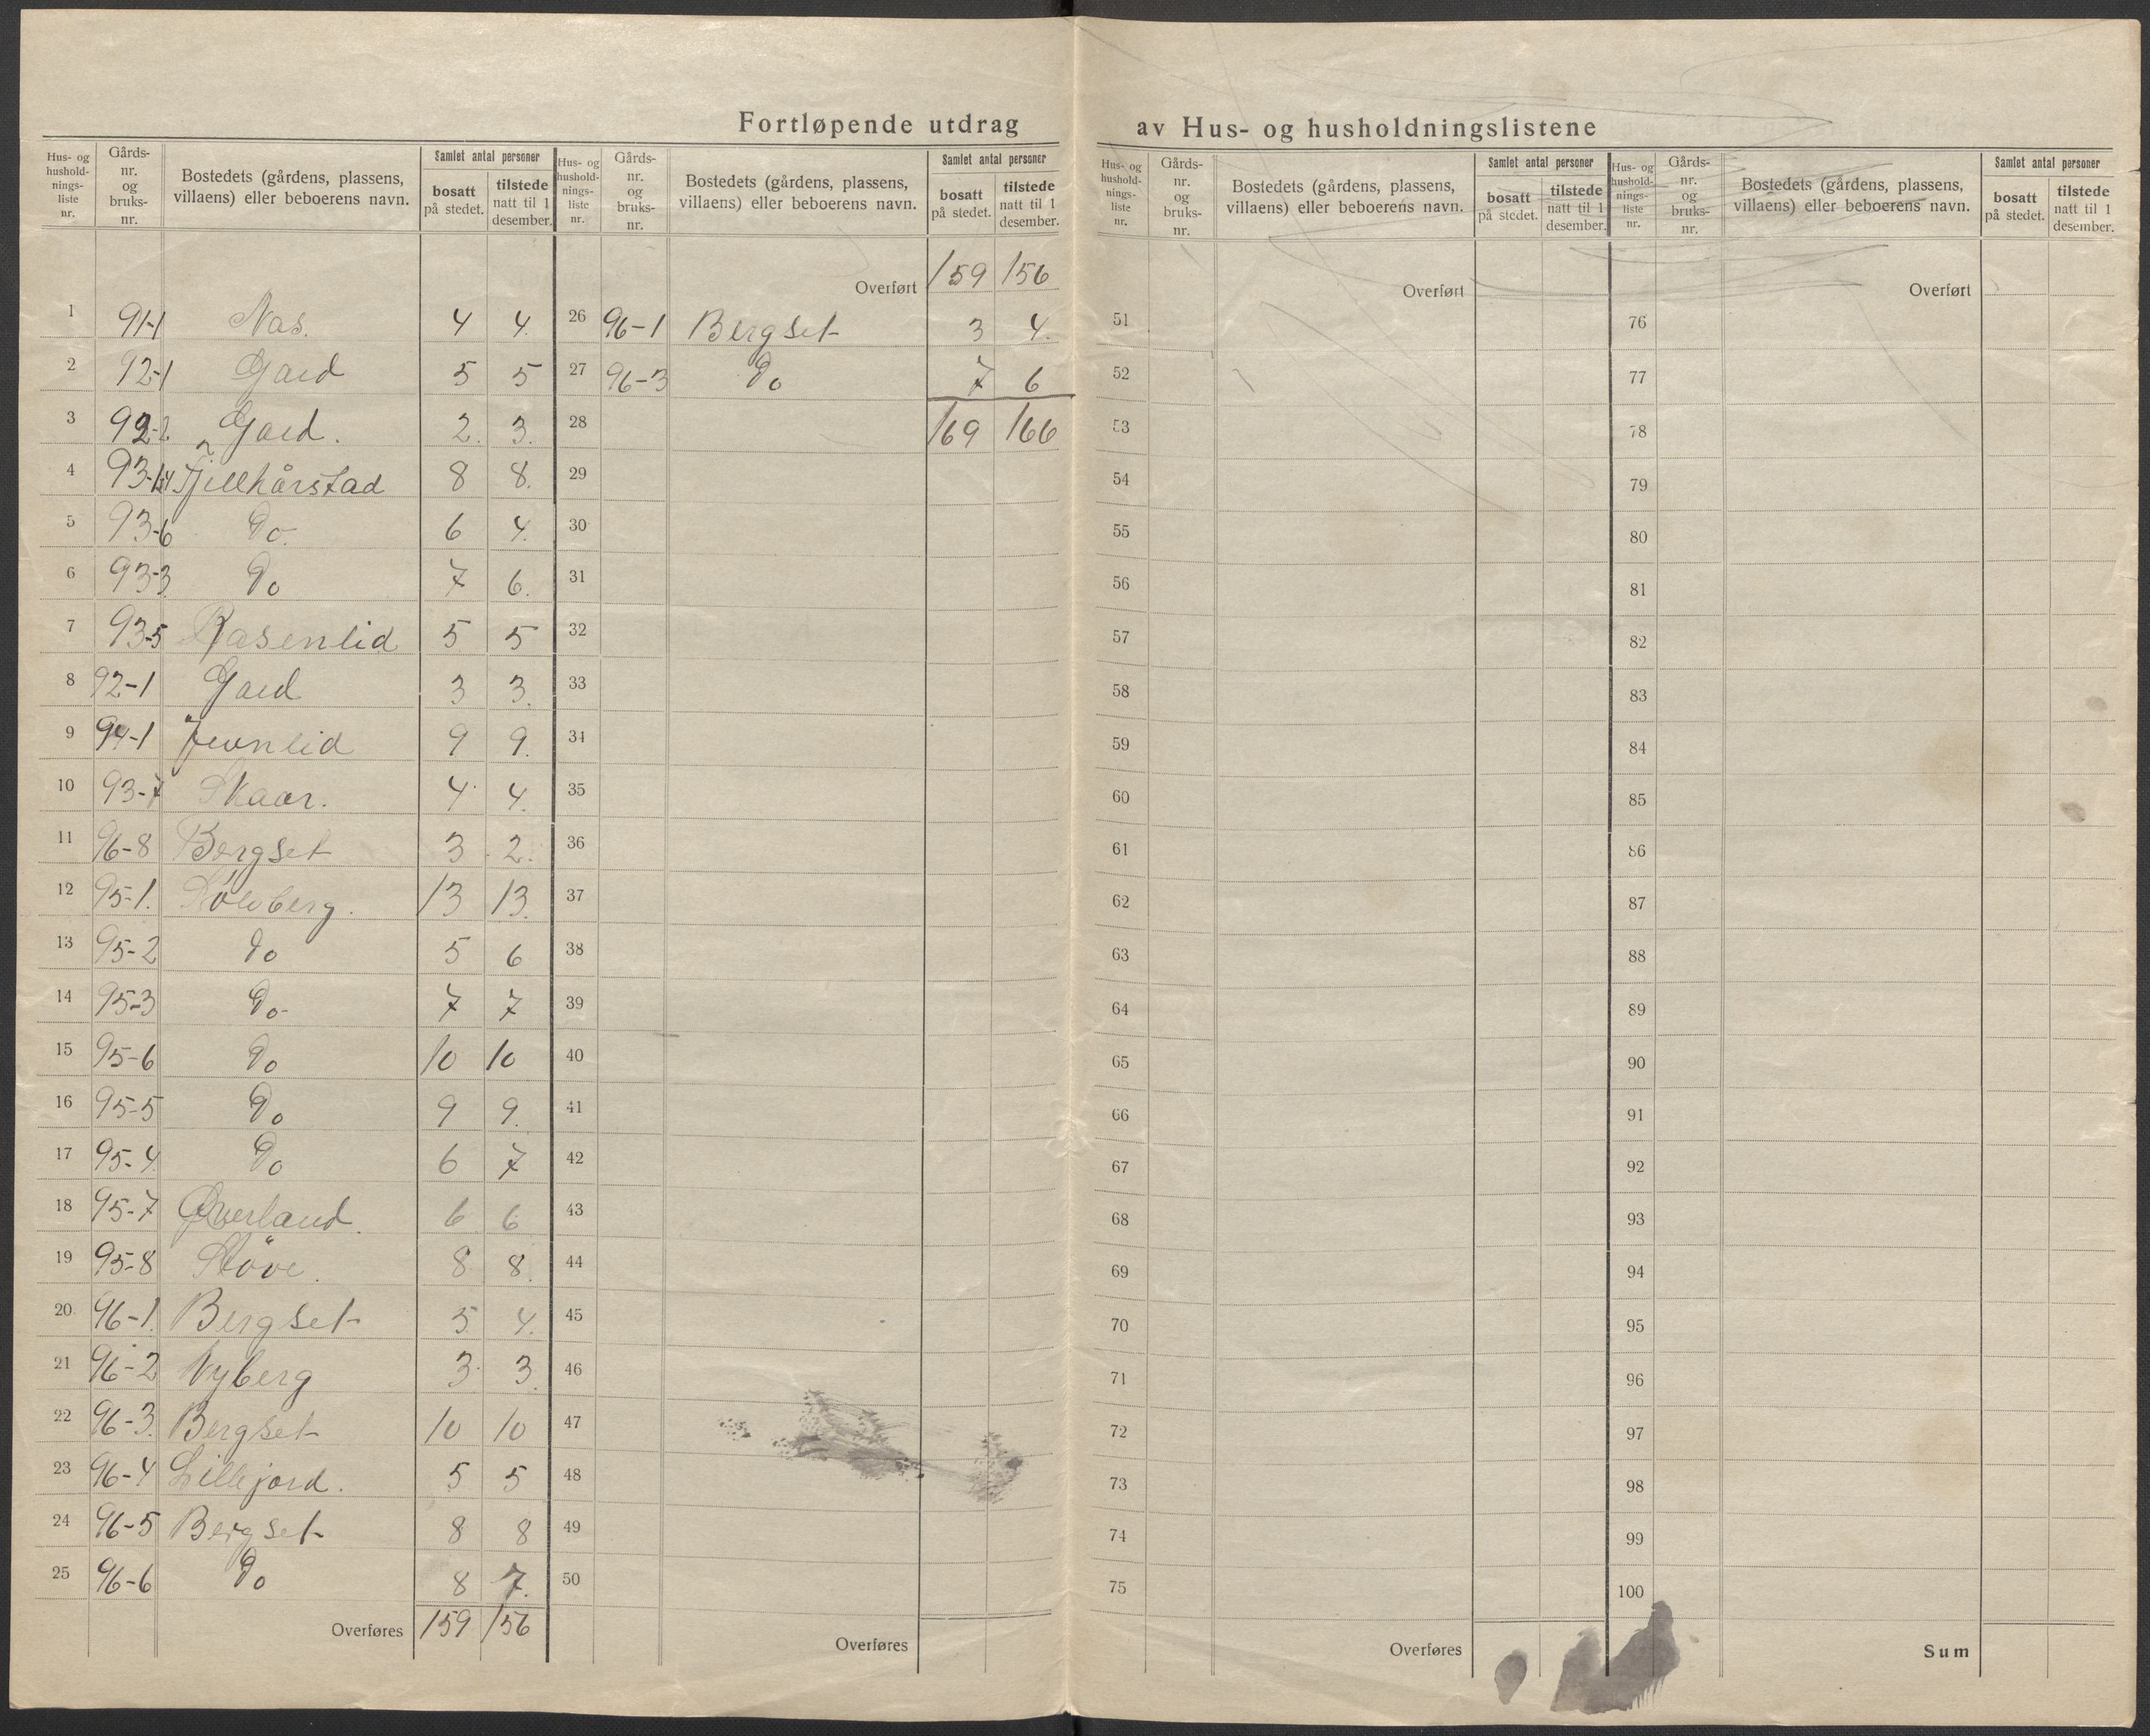 Fortløpende utdrag av Hus- og husholdningslistene
Hus- og husholdnings-liste nr. | Gårds-nr. og bruks-nr. | Bostedets (gårdens, plassens, villaens) eller beboerens navn. | Samlet antal personer bosatt på stedet. | tilstede natt til 1 desember.
1 91-1 Nas. 4 4.
2 92-1 Gard 5 5
3 92-2 Gard. 2. 3.
4 93-1,4 Fjellhårstad 8 8.
5 93-6 Do. 6 4.
6 93-3 Do 7 6.
7 93-5 Rasenlid 5 5
8 92-1 Gard 3 3.
9 94-1 Jevnlid 9 9.
10 93-7 Skaar. 4 4.
11 96-8 Bergset 3 2.
12 95-1. Sölvberg. 13 13.
13 95-2 Do 5 6
14 95-3 Do- 7 7
15 95-6 Do 10 10
16 95-5 Do 9 9.
17 95-4 Do 6 7
18 95-7 Øverland. 6 6
19 95-8 Støve. 8 8.
20 96-1 Bergset 5 4.
21 96-2 Nyberg 3. 3.
22 96-3. Bergset 10 10
23 96-4 Lillejord. 5 5
24 96-5 Bergset 8 8
25 96-6 Do 8 7.
Overføres 159 156
Hus- og husholdnings-liste nr. | Gårds-nr. og bruks-nr. | Bostedets (gårdens, plassens, villaens) eller beboerens navn. | Samlet antal personer bosatt på stedet. | tilstede natt til 1 desember.
Overført 159 156
26 96-1 Bergset 3 4.
27 96-3 Do 7 6
28 169 166
29
30
31
32
33
34
35
36
37
38
39
40
41
42
43
44
45
46
47
48
49
50
Overføres
Hus- og husholdnings-liste nr. | Gårds-nr. og bruks-nr. | Bostedets (gårdens, plassens, villaens) eller beboerens navn. | Samlet antal personer bosatt på stedet. | tilstede natt til 1 desember.
Overført
51
52
53
54
55
56
57
58
59
60
61
62
63
64
65
66
67
68
69
70
71
72
73
74
75
Overføres
Hus- og husholdnings-liste nr. | Gårds-nr. og bruks-nr. | Bostedets (gårdens, plassens, villaens) eller beboerens navn. | Samlet antal personer bosatt på stedet. | tilstede natt til 1 desember.
Overført
76
77
78
79
80
81
82
83
84
85
86
87
88
89
90
91
92
93
94
95
96
97
98
99
100
Sum